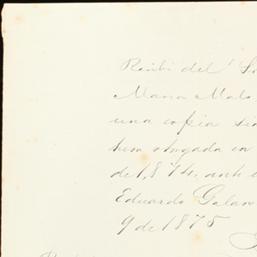 Recibí del S
Maria Malo
una copia
bien otorgada en
de 1,874. ante
Eduardo Galan
9 de 1875